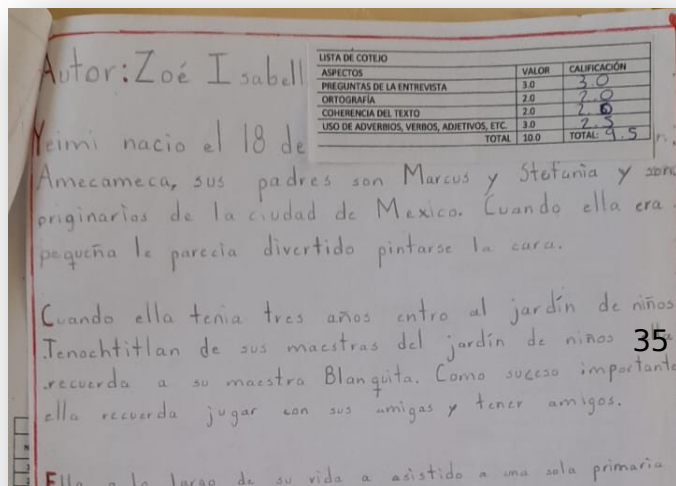 Autor: Zoé Isabell
LISTA DE COTEJO
ASPECTOS VALOR CALIFICACIÓN
PREGUNTAS DE LA ENTREVISTA 3.0 3.0
ORTOGRAFÍA 2.0 2.0
COHERENCIA DEL TEXTO 2.0 2.0
USO DE ADVERBIOS, VERBOS, ADJETIVOS, ETC. 3.0 2.5
TOTAL 10.0 TOTAL: 9.5
Yeimi nacio el 18 de
Amecameca, sus padres son Marcus y Stefania y son
originarios de la ciudad de Mexico. Cuando ella era
pequeña le parecia divertido pintarse la cara.
Cuando ella tenia tres años entro al jardín de niños
Tenochtitlan de sus maestras del jardín de niños 35
recuerda a su maestra Blanquita. Como suceso importante
ella recuerda jugar con sus amigas y tener amigos.
Ella a lo largo de su vida a asistido a una sola primaria